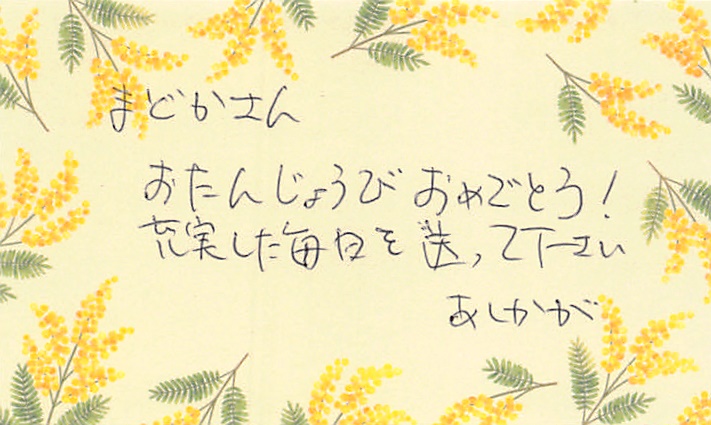 まどかさん
おたんじょうび おめでとう!
充実した毎日を送って下さい
あしかが